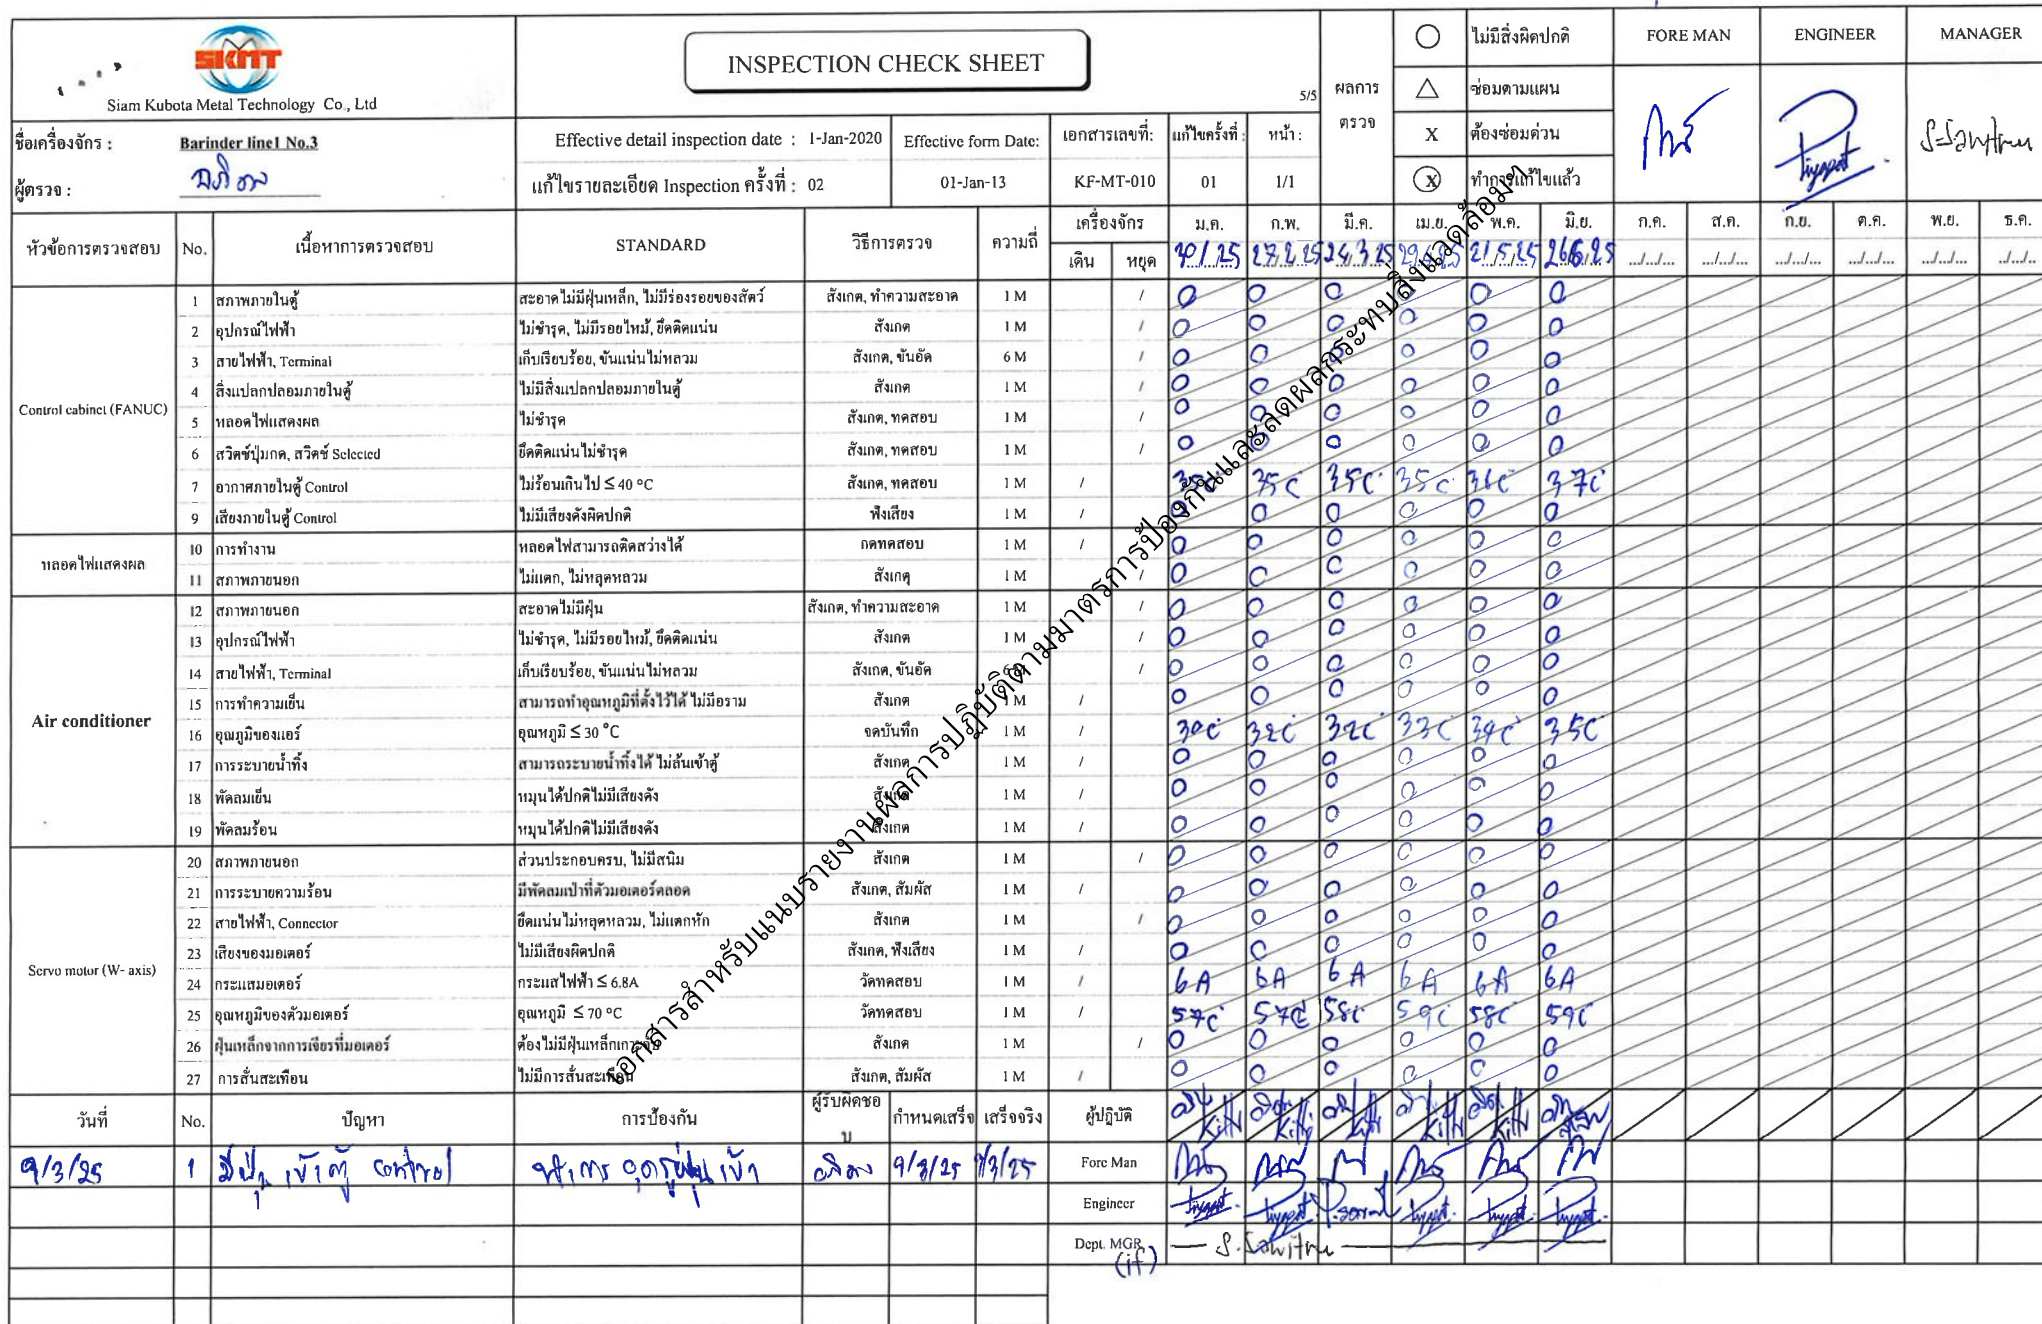 SKMT
Siam Kubota Metal Technology Co., Ltd
INSPECTION CHECK SHEET
5/5
ผลการตรวจ
○ ไม่มีสิ่งผิดปกติ
△ ซ่อมตามแผน
X ต้องซ่อมด่วน
Ⓧ ทำการแก้ไขแล้ว
FORE MAN ENGINEER MANAGER
ชื่อเครื่องจักร : Barinder line1 No.3
ผู้ตรวจ :
Effective detail inspection date : 1-Jan-2020
แก้ไขรายละเอียด Inspection ครั้งที่ : 02
Effective form Date: 01-Jan-13
เอกสารเลขที่: KF-MT-010
แก้ไขครั้งที่ : 01
หน้า : 1/1
หัวข้อการตรวจสอบ No. เนื้อหาการตรวจสอบ STANDARD วิธีการตรวจ ความถี่ เครื่องจักร เดิน หยุด ม.ค. ก.พ. มี.ค. เม.ย. พ.ค. มิ.ย. ก.ค. ส.ค. ก.ย. ต.ค. พ.ย. ธ.ค.
27.2.25 24.3.25 21/5/25 26.6.25 ../../... ../../... ../../... ../../... ../../... ../../...
Control cabinet (FANUC)
1 สภาพภายในตู้ สะอาดไม่มีฝุ่นเหล็ก, ไม่มีร่องรอยของสัตว์ สังเกต, ทำความสะอาด 1 M / O O O O O
2 อุปกรณ์ไฟฟ้า ไม่ชำรุด, ไม่มีรอยไหม้, ยึดติดแน่น สังเกต 1 M / O O O O O O
3 สายไฟฟ้า, Terminal เก็บเรียบร้อย, ขันแน่นไม่หลวม สังเกต, ขันอัด 6 M / O O O O O O
4 สิ่งแปลกปลอมภายในตู้ ไม่มีสิ่งแปลกปลอมภายในตู้ สังเกต 1 M / O O O O O O
5 หลอดไฟแสดงผล ไม่ชำรุด สังเกต, ทดสอบ 1 M / O O O O O O
6 สวิตช์ปุ่มกด, สวิตช์ Selected ยึดติดแน่นไม่ชำรุด สังเกต, ทดสอบ 1 M / O O O O O O
7 อากาศภายในตู้ Control ไม่ร้อนเกินไป ≤ 40 °C สังเกต, ทดสอบ 1 M / 35C 35C 35C 36C 37C
9 เสียงภายในตู้ Control ไม่มีเสียงดังผิดปกติ ฟังเสียง 1 M / O O O O O O
หลอดไฟแสดงผล
10 การทำงาน หลอดไฟสามารถติดสว่างได้ กดทดสอบ 1 M / O O O O O O
11 สภาพภายนอก ไม่แตก, ไม่หลุดหลวม สังเกต 1 M / O O O O O O
Air conditioner
12 สภาพภายนอก สะอาดไม่มีฝุ่น สังเกต, ทำความสะอาด 1 M / O O O O O O
13 อุปกรณ์ไฟฟ้า ไม่ชำรุด, ไม่มีรอยไหม้, ยึดติดแน่น สังเกต 1 M / O O O O O O
14 สายไฟฟ้า, Terminal เก็บเรียบร้อย, ขันแน่นไม่หลวม สังเกต, ขันอัด / O O O O O O
15 การทำความเย็น สามารถทำอุณหภูมิที่ตั้งไว้ได้ ไม่มีอราม สังเกต 1 M / O O O O O O
16 อุณภูมิของแอร์ อุณหภูมิ ≤ 30 °C จดบันทึก 1 M / 30C 32C 32C 33C 34C 35C
17 การระบายน้ำทิ้ง สามารถระบายน้ำทิ้งได้ ไม่ล้นเข้าตู้ สังเกต 1 M / O O O O O O
18 พัดลมเย็น หมุนได้ปกติไม่มีเสียงดัง สังเกต 1 M / O O O O O O
19 พัดลมร้อน หมุนได้ปกติไม่มีเสียงดัง สังเกต 1 M / O O O O O O
Servo motor (W- axis)
20 สภาพภายนอก ส่วนประกอบครบ, ไม่มีสนิม สังเกต 1 M / O O O O O O
21 การระบายความร้อน มีพัดลมเป่าที่ตัวมอเตอร์ตลอด สังเกต, สัมผัส 1 M / O O O O O O
22 สายไฟฟ้า, Connector ยึดแน่นไม่หลุดหลวม, ไม่แตกหัก สังเกต 1 M / O O O O O O
23 เสียงของมอเตอร์ ไม่มีเสียงผิดปกติ สังเกต, ฟังเสียง 1 M / O O O O O O
24 กระแสมอเตอร์ กระแสไฟฟ้า ≤ 6.8A วัดทดสอบ 1 M / 6A 6A 6A 6A 6A 6A
25 อุณหภูมิของตัวมอเตอร์ อุณหภูมิ ≤ 70 °C วัดทดสอบ 1 M / 57C 57C 58C 59C 58C 59C
26 ฝุ่นเหล็กจากการเจียรที่มอเตอร์ ต้องไม่มีฝุ่นเหล็กเกาะจับ สังเกต 1 M / O O O O O O
27 การสั่นสะเทือน ไม่มีการสั่นสะเทือน สังเกต, สัมผัส 1 M / O O O O O O
วันที่ No. ปัญหา การป้องกัน ผู้รับผิดชอบ กำหนดเสร็จ เสร็จจริง ผู้ปฏิบัติ
9/3/25 1 มีฝุ่นเข้าตู้ control ทำการอุดรูฝุ่นเข้า 9/3/25 9/3/25 Fore Man
Engineer
Dept. MGR
(if)
เอกสารสำหรับแนบรายงานผลการปฏิบัติตามมาตรการป้องกันและลดผลกระทบสิ่งแวดล้อมฯ